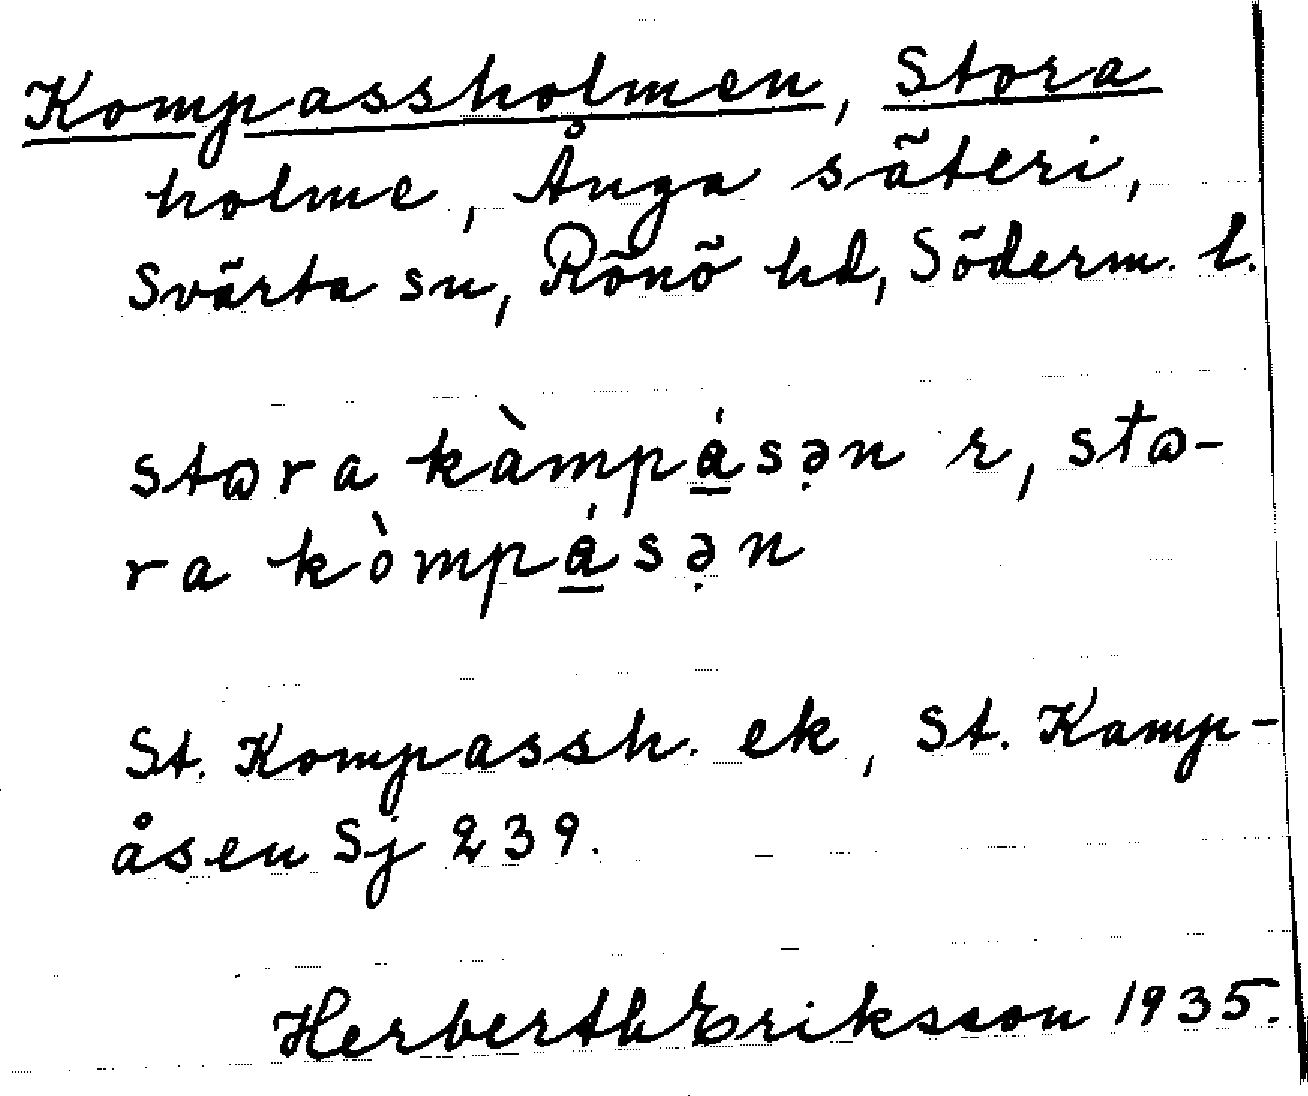 Kompassholmen, Stora
holme, Ånga säteri,
Svärta sn, Rönö hd, Söderm. l.
stɷra kàmpá̲sə̣n r, stɷ-
ra kòmpá̲sə̣n
St. Kompassh. ek, St. Kamp-
åsen Sj 239.
Herberth Eriksson 1935.